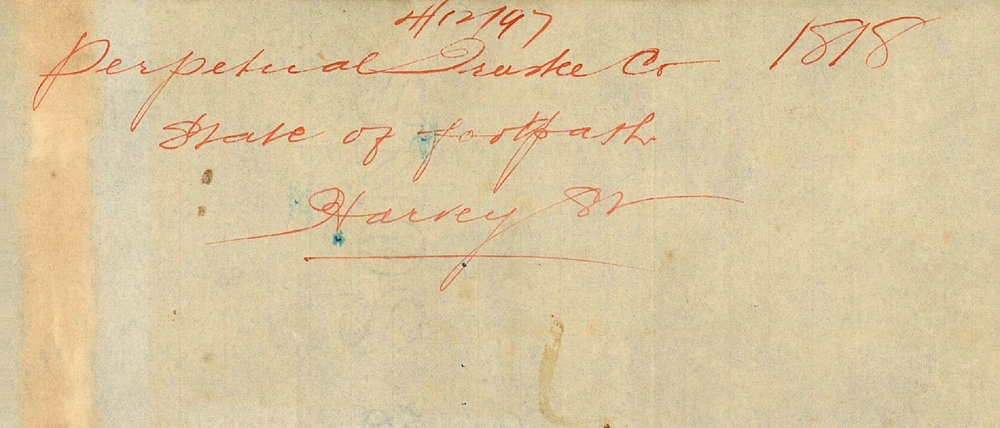 4/12/97
Perpetual Trustee Co 1818
State of footpath
Harvey St